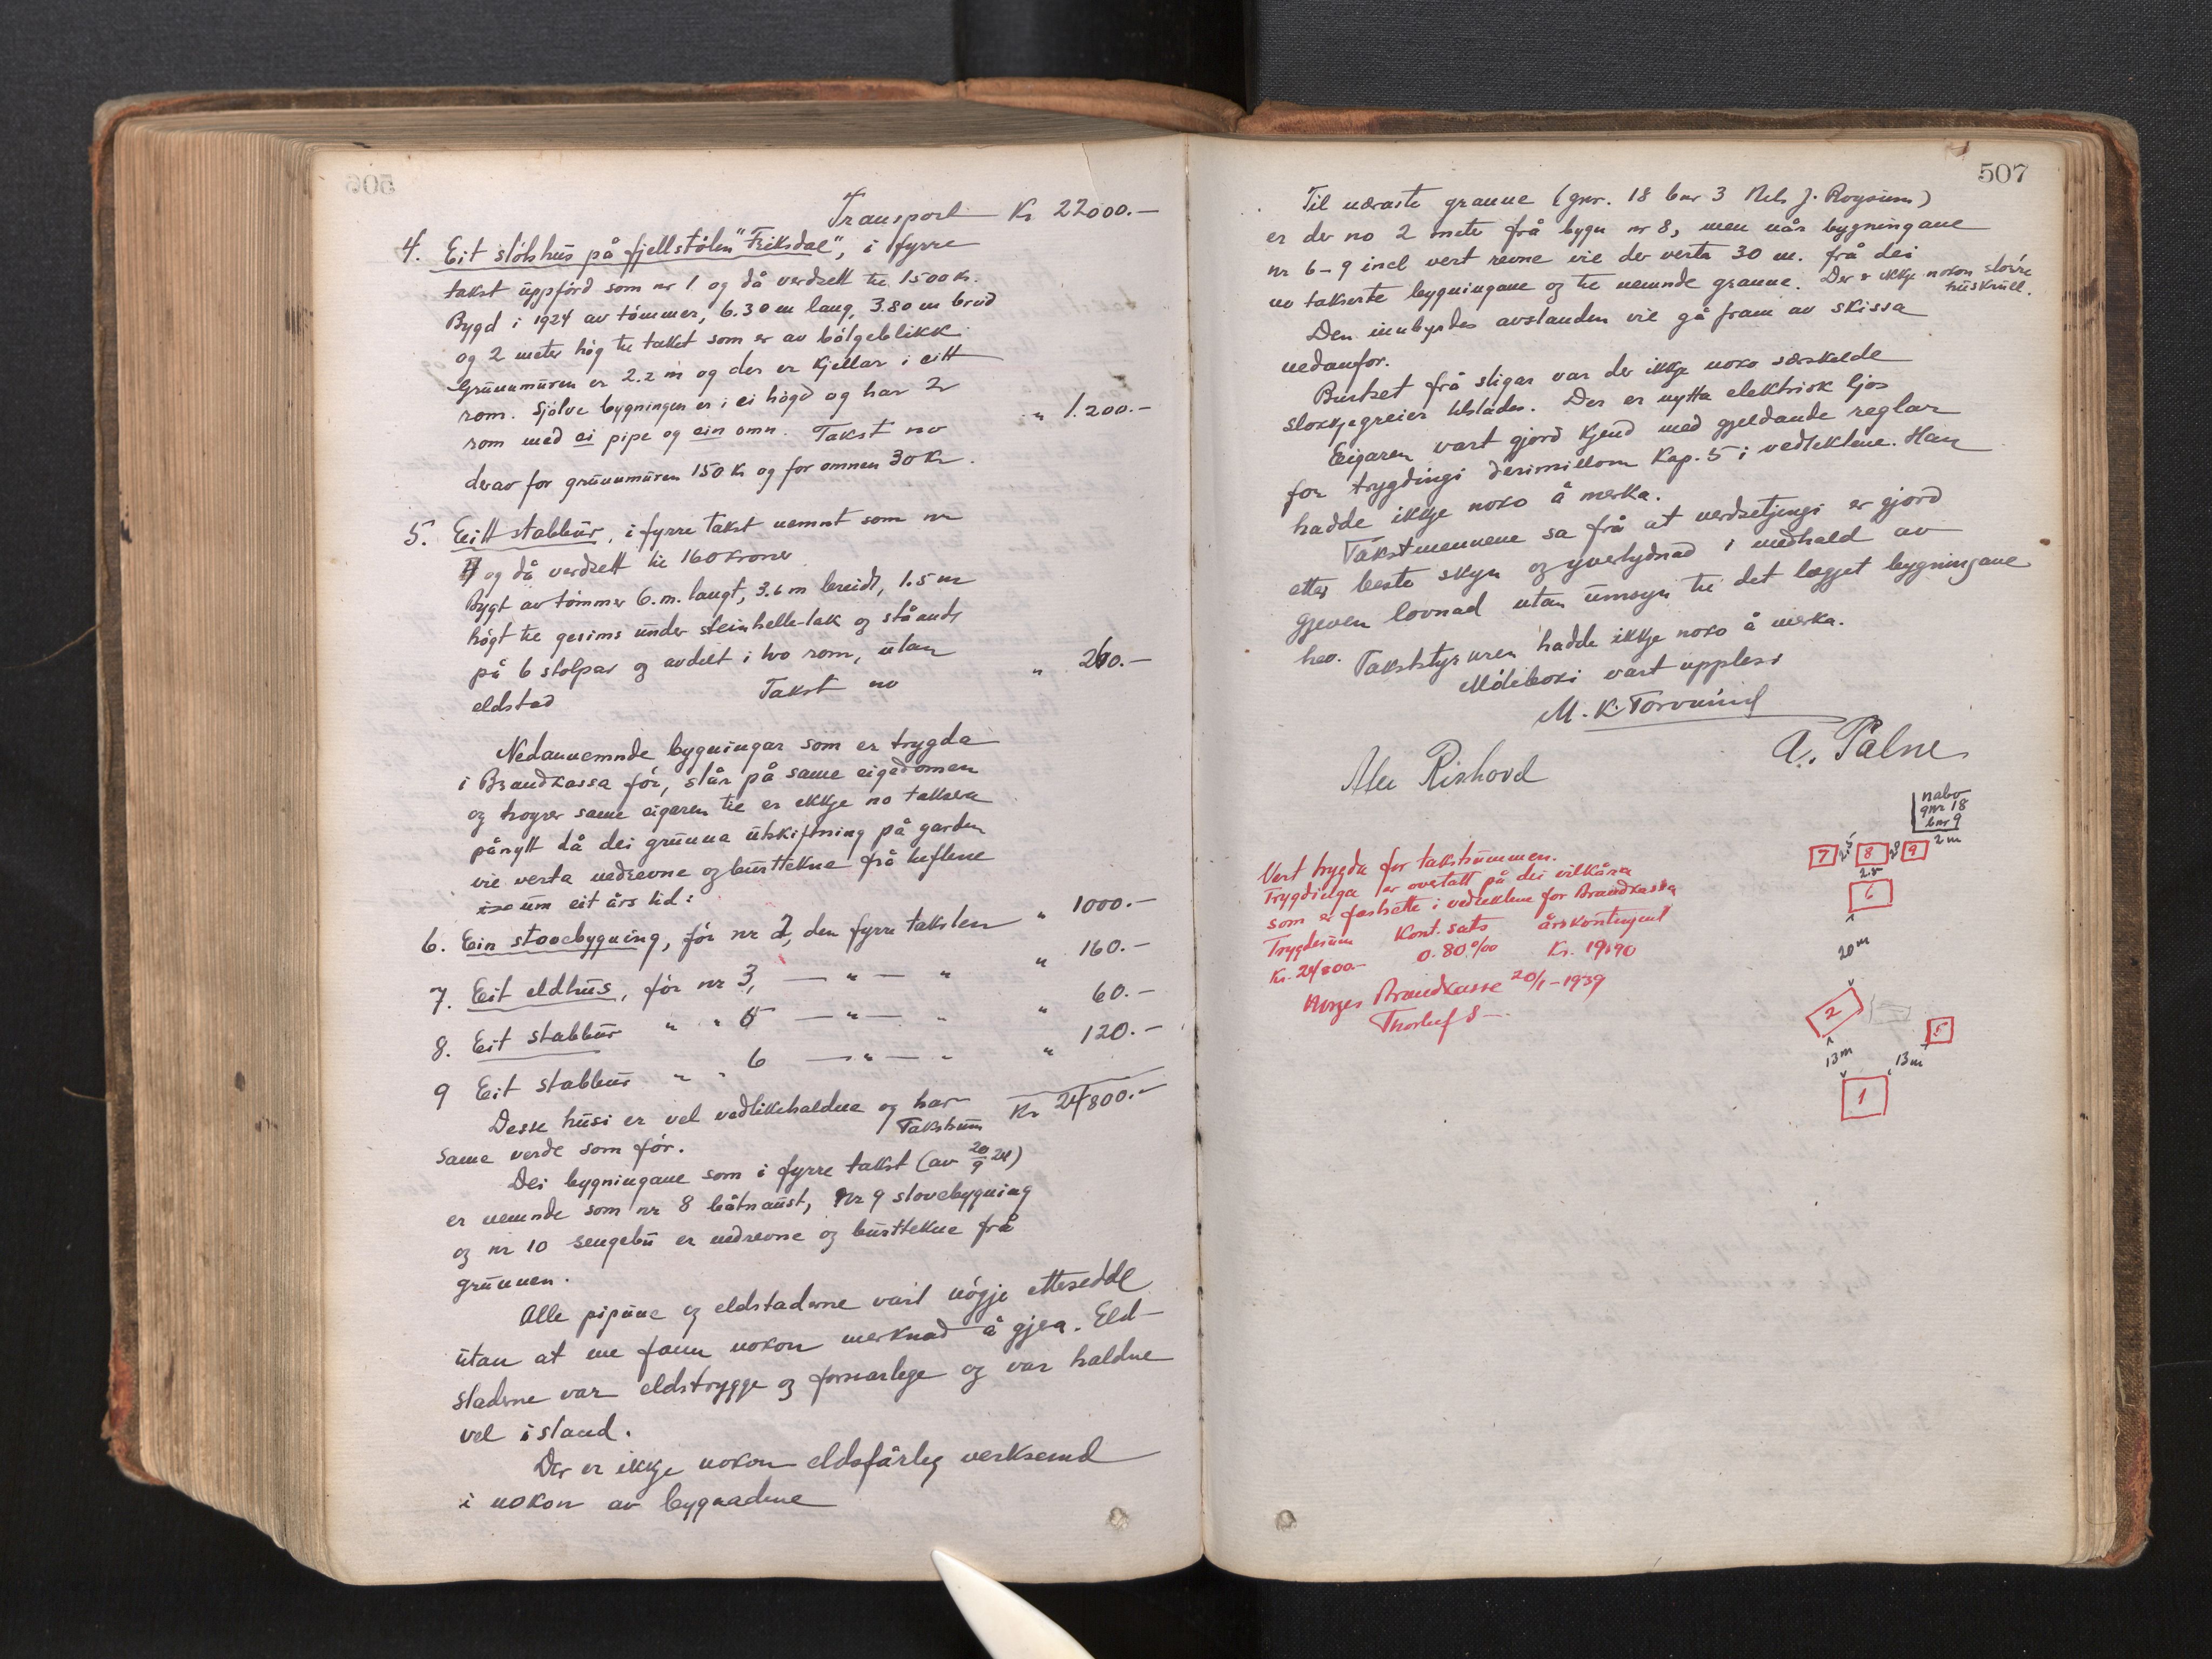 506
Transport Kr 22000.-
4. Eit stölshus på fjellstölen "Friksdal", i fyrre
takst uppförd som nr 1 og då verdsett til 1500 Kr.
Bygd i 1924 av tömmer, 6.30 m lang, 3.80 m breid
og 2 meter hög til taket som er av bölgeblikk
Grunnmuren er 2.2 m og der er kjellar i eitt
rom. Sjölve bygningen er i ei högd og har 2
rom med ei pipe og ein omn. Takst no " 1.200.-
derav for grunnmuren 150 Kr og for omnen 30 Kr.
5. Eitt stabbur, i fyrre takst nemnt som nr
4 og då verdsett til 160 kroner
Bygt av tömmer 6.m. langt, 3.6 m breidt, 1.5 m
högt til gesims under steinhelle-tak og ståande
på 6 stolpar og avdelt i tvo rom, utan
eldstad Takst no " 260.-
Nedannemnde bygningar som er trygda
i Brandkassa för, står på same eigedomen
og höyrer same eigaren til er ikkje no taksera
pånytt då dei grunna utskiftning på garden
vil verta nedrevne og burttekne frå tuftene
um eit års tid:
6. Ein stovebygning, för nr 2, den fyrre taksten " 1000.-
7. Eit eldhus, för nr 3, — " — " " 160.-
8. Eit stabbur " " 5 — " — " " 60.-
9 Eit stabbur " " 6 — " — " " 120.-
Desse husi er vel vedlikehaldne og har
Takstsum Kr 24800.-
same verde som för.
Dei bygningane som i fyrre takst (av 20/9 24)
er nemnde som nr 8 båtnaust, Nr 9 stovebygning
og nr 10 sengebu er nedrevne og burttekne frå
grunnen.
Alle pipune og eldstaderne vart nögje ettersedde
utan at me fann nokon merknad å gjera. Eld-
staderne var eldstrygge og forsvarlege og var haldne
vel i stand.
Der er ikkje nokon eldsfårleg verksemd
i nokon av bygnadene
507
Til næraste granne (gnr. 18 bnr 3 Nils J. Røysum)
er der no 2 meter frå bygn nr 8, men når bygningane
nr 6-9 incl vert revne vil der verta 30 m. frå dei
no takserte bygningane og til nemnde granne. Der er ikkje nokon större
huskrull.
Den innbyrdes avstanden vil gå fram av skissa
nedanfor.
Burtset frå stigar var der ikkje noko særskilde
slokkjegreier tilstades. Der er nytta elektrisk ljos
Eigaren vart gjord kjend med gjeldande reglar
for trygdingi derimillom Kap. 5 i vedtektene. Han
hadde ikkje noko å merka.
Takstmennene sa frå at verdsetjingi er gjord
etter beste skyn og yvertydnad i medhald av
gjeven lovnad utan umsyn til det lægjet bygningane
hev. Takststyraren hadde ikkje noko å merka.
Möteboki vart upplesi
M. K. Torvund
A. Pålne
Rishovd
nabo
gnr 18
bnr 9
2 m
7 8 9
2.5
6
20 m
2
5
13 m 13 m
1
Vert trygda for takstsummen.
Trygdinga er overtatt på dei vilkåra
som er fastsette i vedtektene for Brandkassa
Trygdesum Kont. sats årskontingent
Kr. 24800.- 0.80 0/00 Kr. 19.90
Norges Brandkasse 20/1-1939